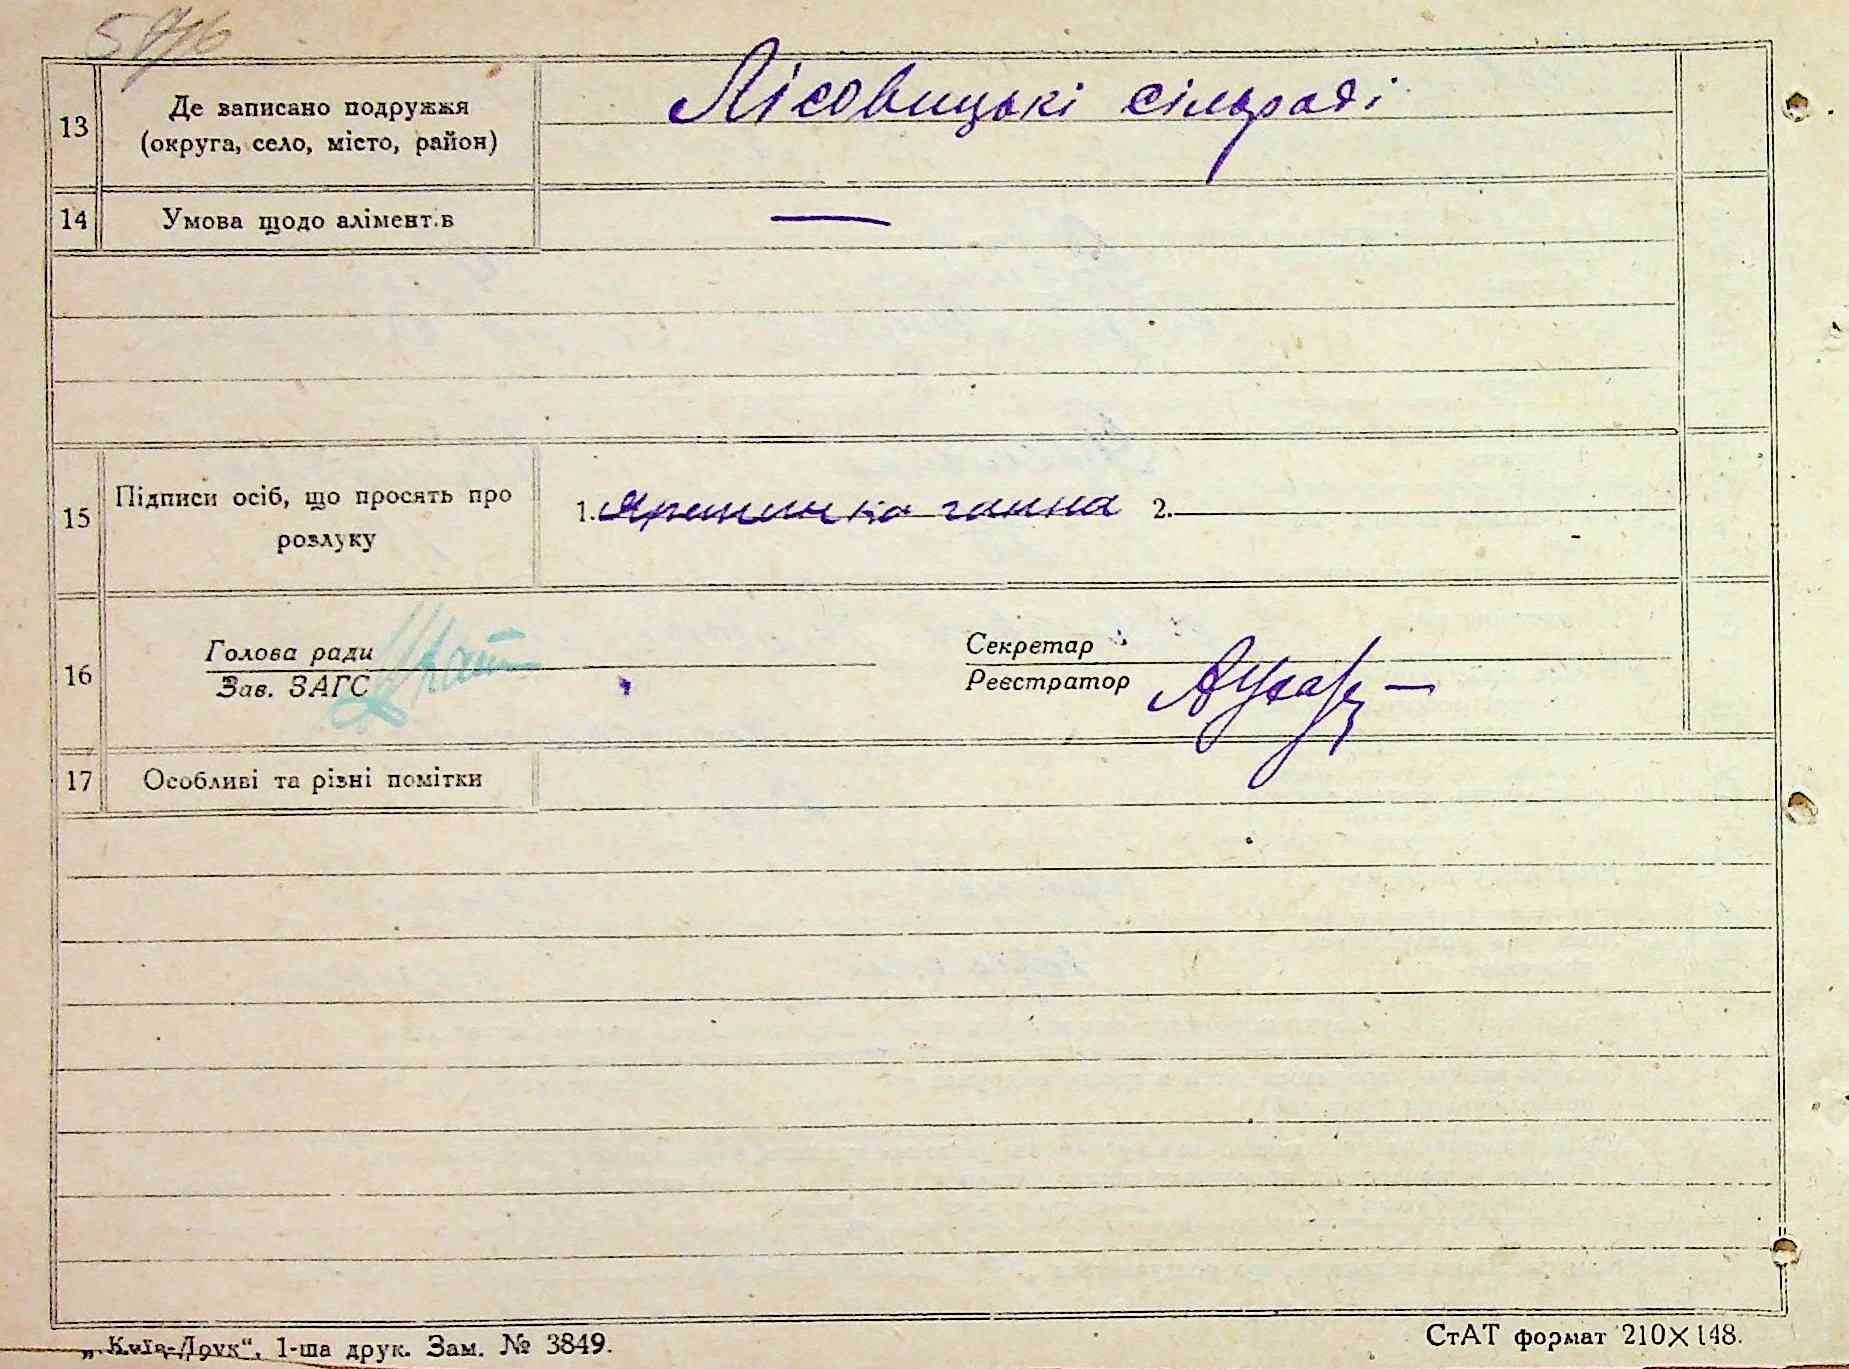 13 Де записано подружжя
(округа, село, місто, район)
Лісовицькі сільраді
14 Умова щодо алімент.в —
15 Підписи осіб, що просять про
розлуку
1. ганна 2.
16 Голова ради
Зав. ЗАГС
Секретар
Реєстратор
17 Особливі та різні помітки
„Київ-Друк“, 1-ша друк. Зам. № 3849.
СтАТ формат 210×148.